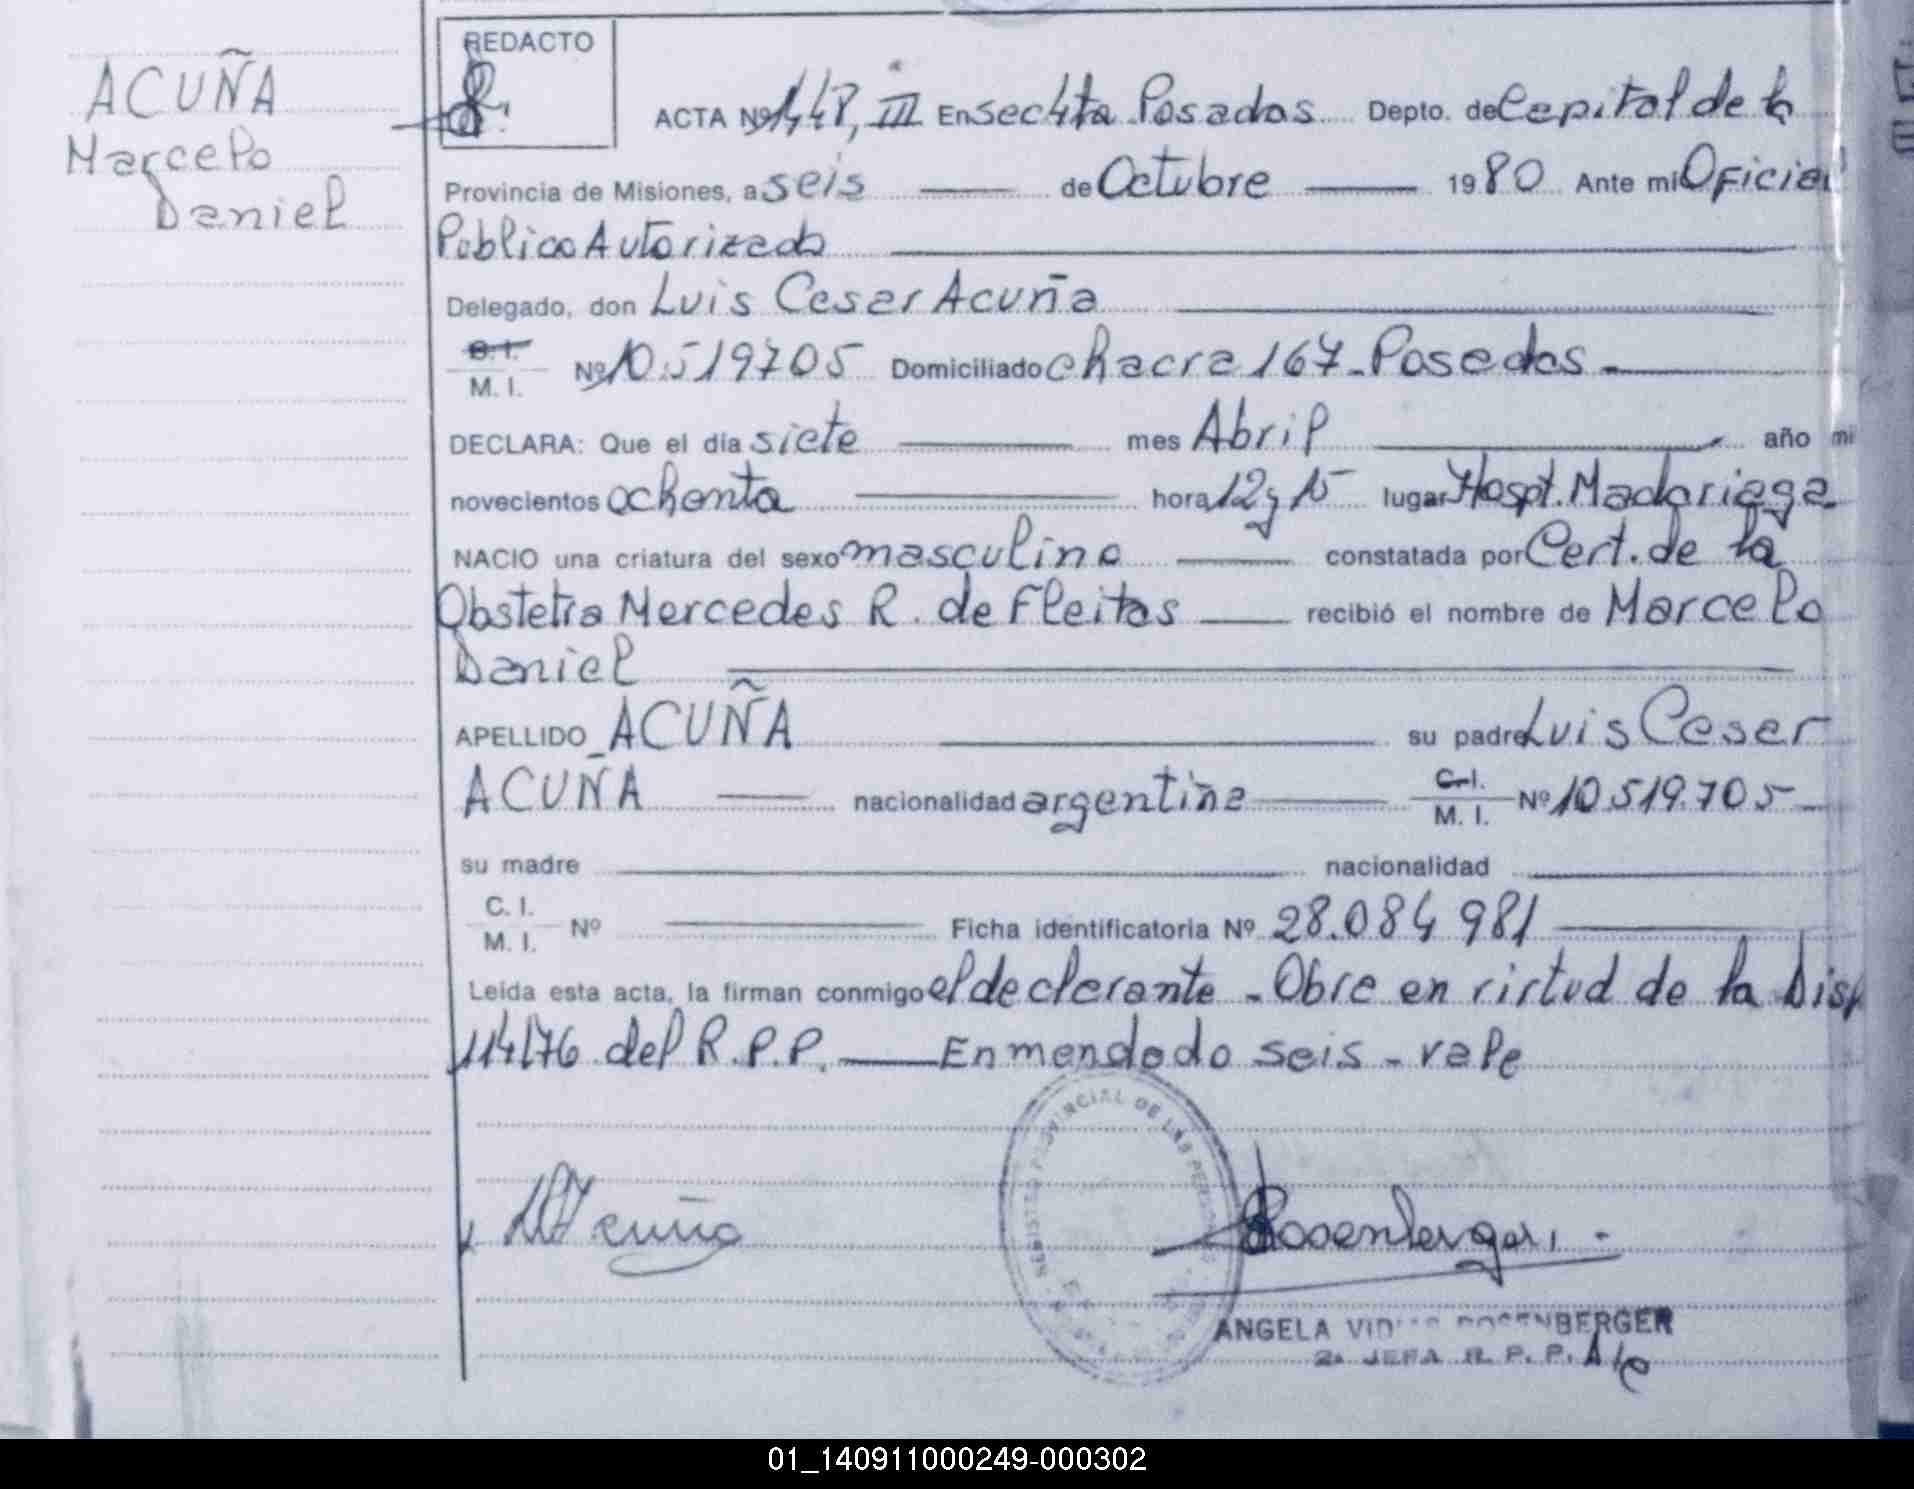 ACUÑA
Marcelo
Daniel
REDACTO
ACTA Nº 1448, III En Sec 4ta Posadas Depto. de Capital de la
Provincia de Misiones, a seis de Octubre 1980 Ante mi Oficial
Publico Autorizado
Delegado, don Luis Cesar Acuña
C. I.
M. I. Nº 10.519705 Domiciliado chacra 167 - Posadas -
DECLARA: Que el día siete mes Abril año mi
novecientos ochenta hora 12 y 15 lugar Hospt. Madariaga
NACIO una criatura del sexo masculino constatada por Cert. de la
Obstetra Mercedes R. de Fleitas recibió el nombre de Marcelo
Daniel
APELLIDO ACUÑA su padre Luis Cesar
ACUÑA nacionalidad argentina C. I.
M. I. Nº 10.519.705
su madre nacionalidad
C. I.
M. I. Nº Ficha identificatoria Nº 28.084 981
Leída esta acta, la firman conmigo el declarante - Obra en virtud de la Disp
114/76 del R.P.P. Enmendado seis - vale
Acuña
REGISTRO PROVINCIAL DE LAS PERSONAS
Rosenberger
ANGELA ROSENBERGER
2ª JEFA R. P. P.
01_140911000249-000302